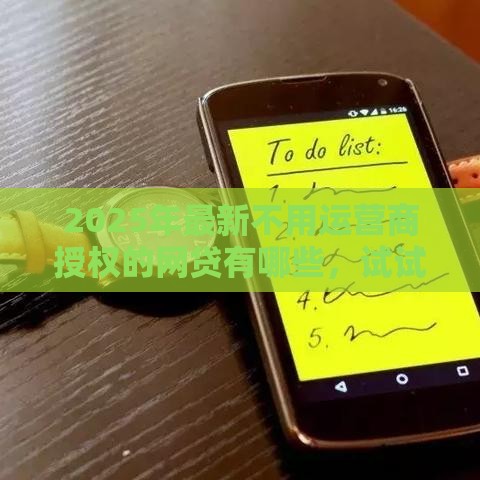 16:29
To do list:
1.
2025年最新不用运营商
授权的网贷有哪些，试试
4.
5.